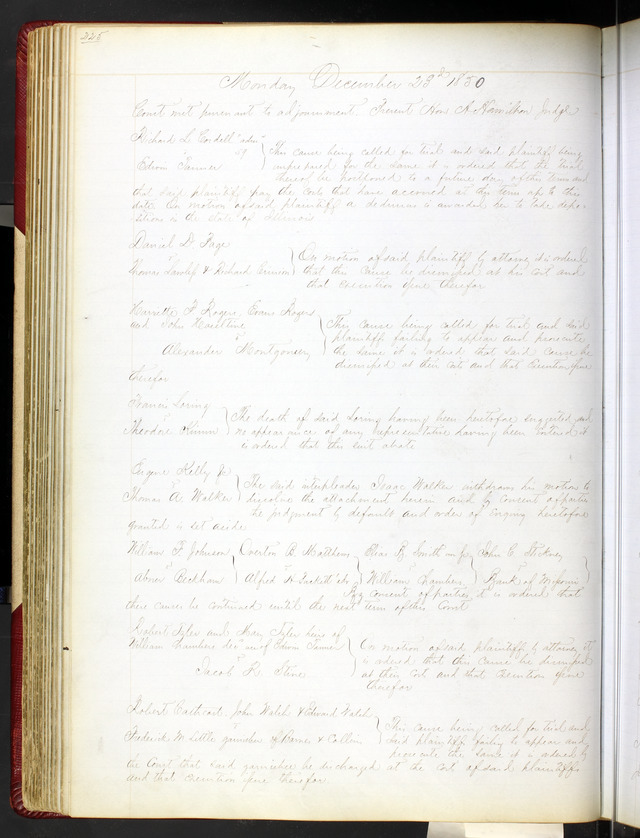 225
Monday December 23d 1850
Court met pursuant to adjournment. Present Hon A Hamilton Judge
Richard L Cordell "adm"
vs
Edwin Tanner
This cause being called for trial and said plaintiff being
unprepared for the same it is ordered that the trial
thereof be postponed to a future day of the term and
that said plaintiff pay the costs that have accrued at this term up to this
date On motion of said plaintiff a dedimus is awarded him to take depo
sitions in the state of Illinois
Daniel D Page
vs
Thomas & Richard
On motion of said plaintiff by attorney it is ordered
that this cause be dismissed at his cost and
that execution issue therefor
Harriette F Rogers, Evans Rogers
and John Haseltine
vs
Alexander Montgomery
This cause being called for trial and said
plaintiff failing to appear and prosecute
the same it is ordered that said cause be
dismissed at their costs and that Execution issue
therefor
Francis Loring
vs
Theodore
The death of said Loring having been heretofore suggested and
no appearance of any representative having been entered it
is ordered that this suit abate
Eugene Kelly Jr
vs
Thomas A Walker
The said interpleader Isaac Walker withdraws his motion to
dissolve the attachment herein and by consent of parties
the judgment by default and order of enquiry heretofore
granted is set aside
William F Johnson
vs
Abner Beckham
Overton B Matthews
vs
Alfred
Elias B Smith
vs
William Chambers
John C Stickney
vs
Bank of Missouri
By consent of parties it is ordered that
these causes be continued until the next term of this Court
Gilbert and Mary Tyler heirs of
William Chambers dec use of Edwin Tanner
vs
Jacob R Stine
On motion of said plaintiff by attorney it
is ordered that this cause be dismissed
at their cost and that execution issue
therefor
Robert Cathcart John Walsh & Edward Walsh
vs
Frederick M Little garnishee of & Collins
This cause being called for trial and
said plaintiff failing to appear and
prosecute the same it is ordered by
the Court that said garnishee be discharged at the cost of said plaintiffs
and that execution issue therefor